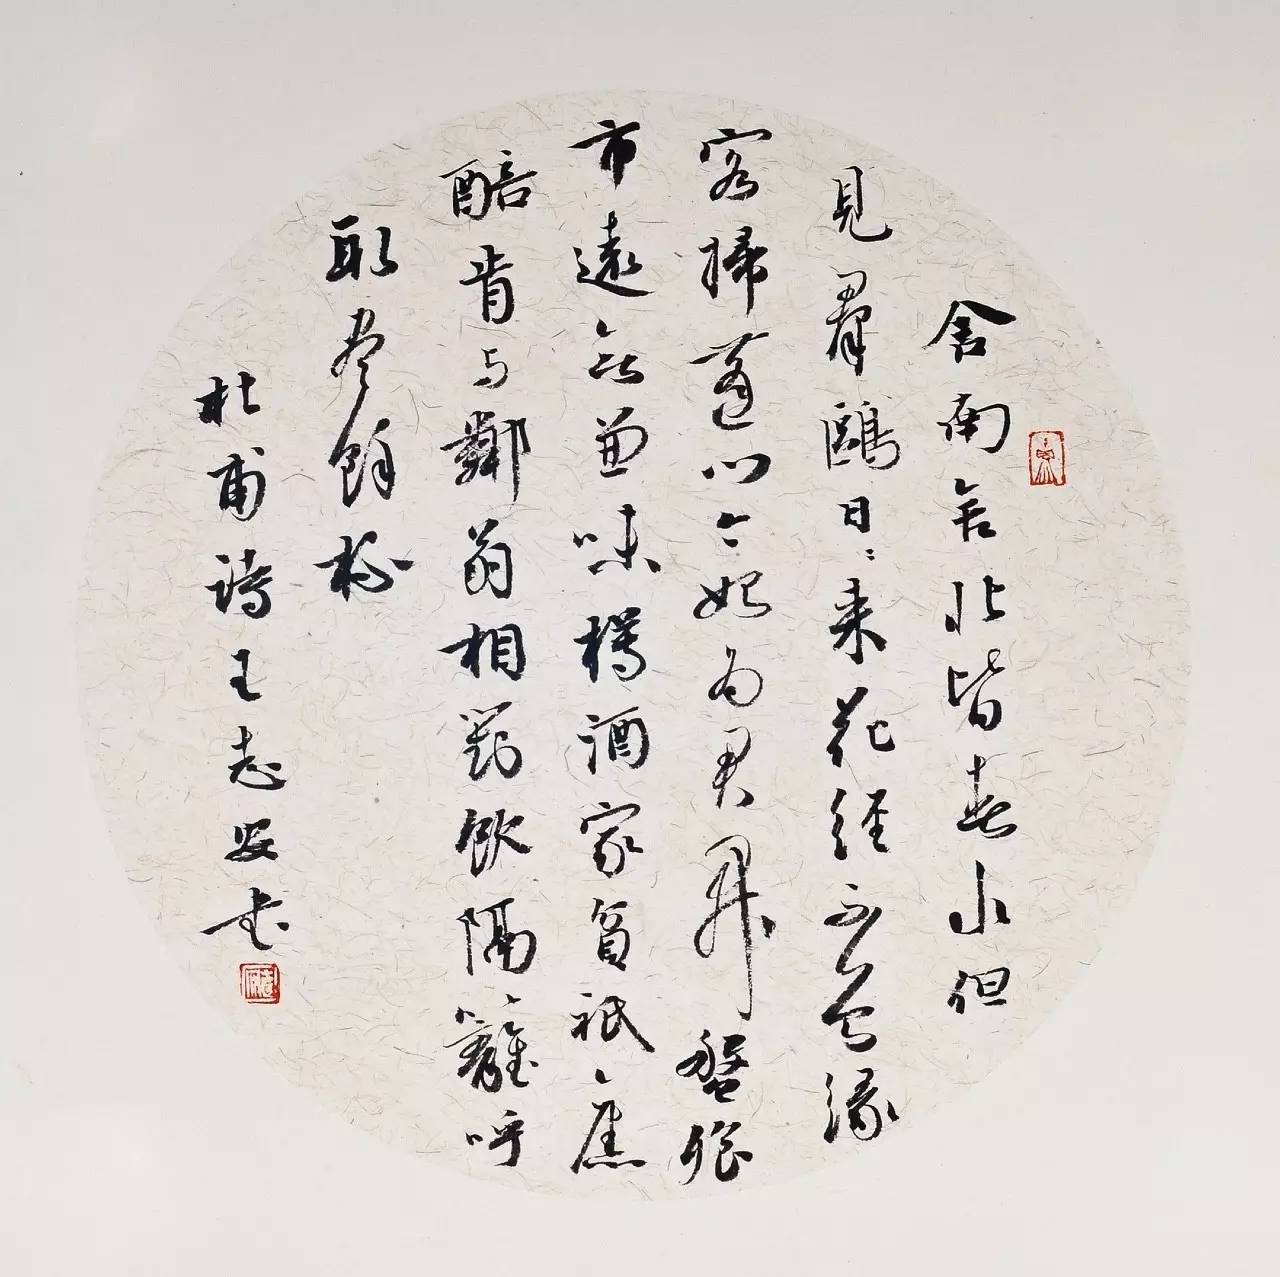 舍南舍北皆春水但
見羣鷗日々来花徑不曾緣
客掃蓬門今始為君開盤飧
市遠無兼味樽酒家貧祇舊
醅肯与鄰翁相對飲隔籬呼
取盡餘杯
杜甫詩王志安書